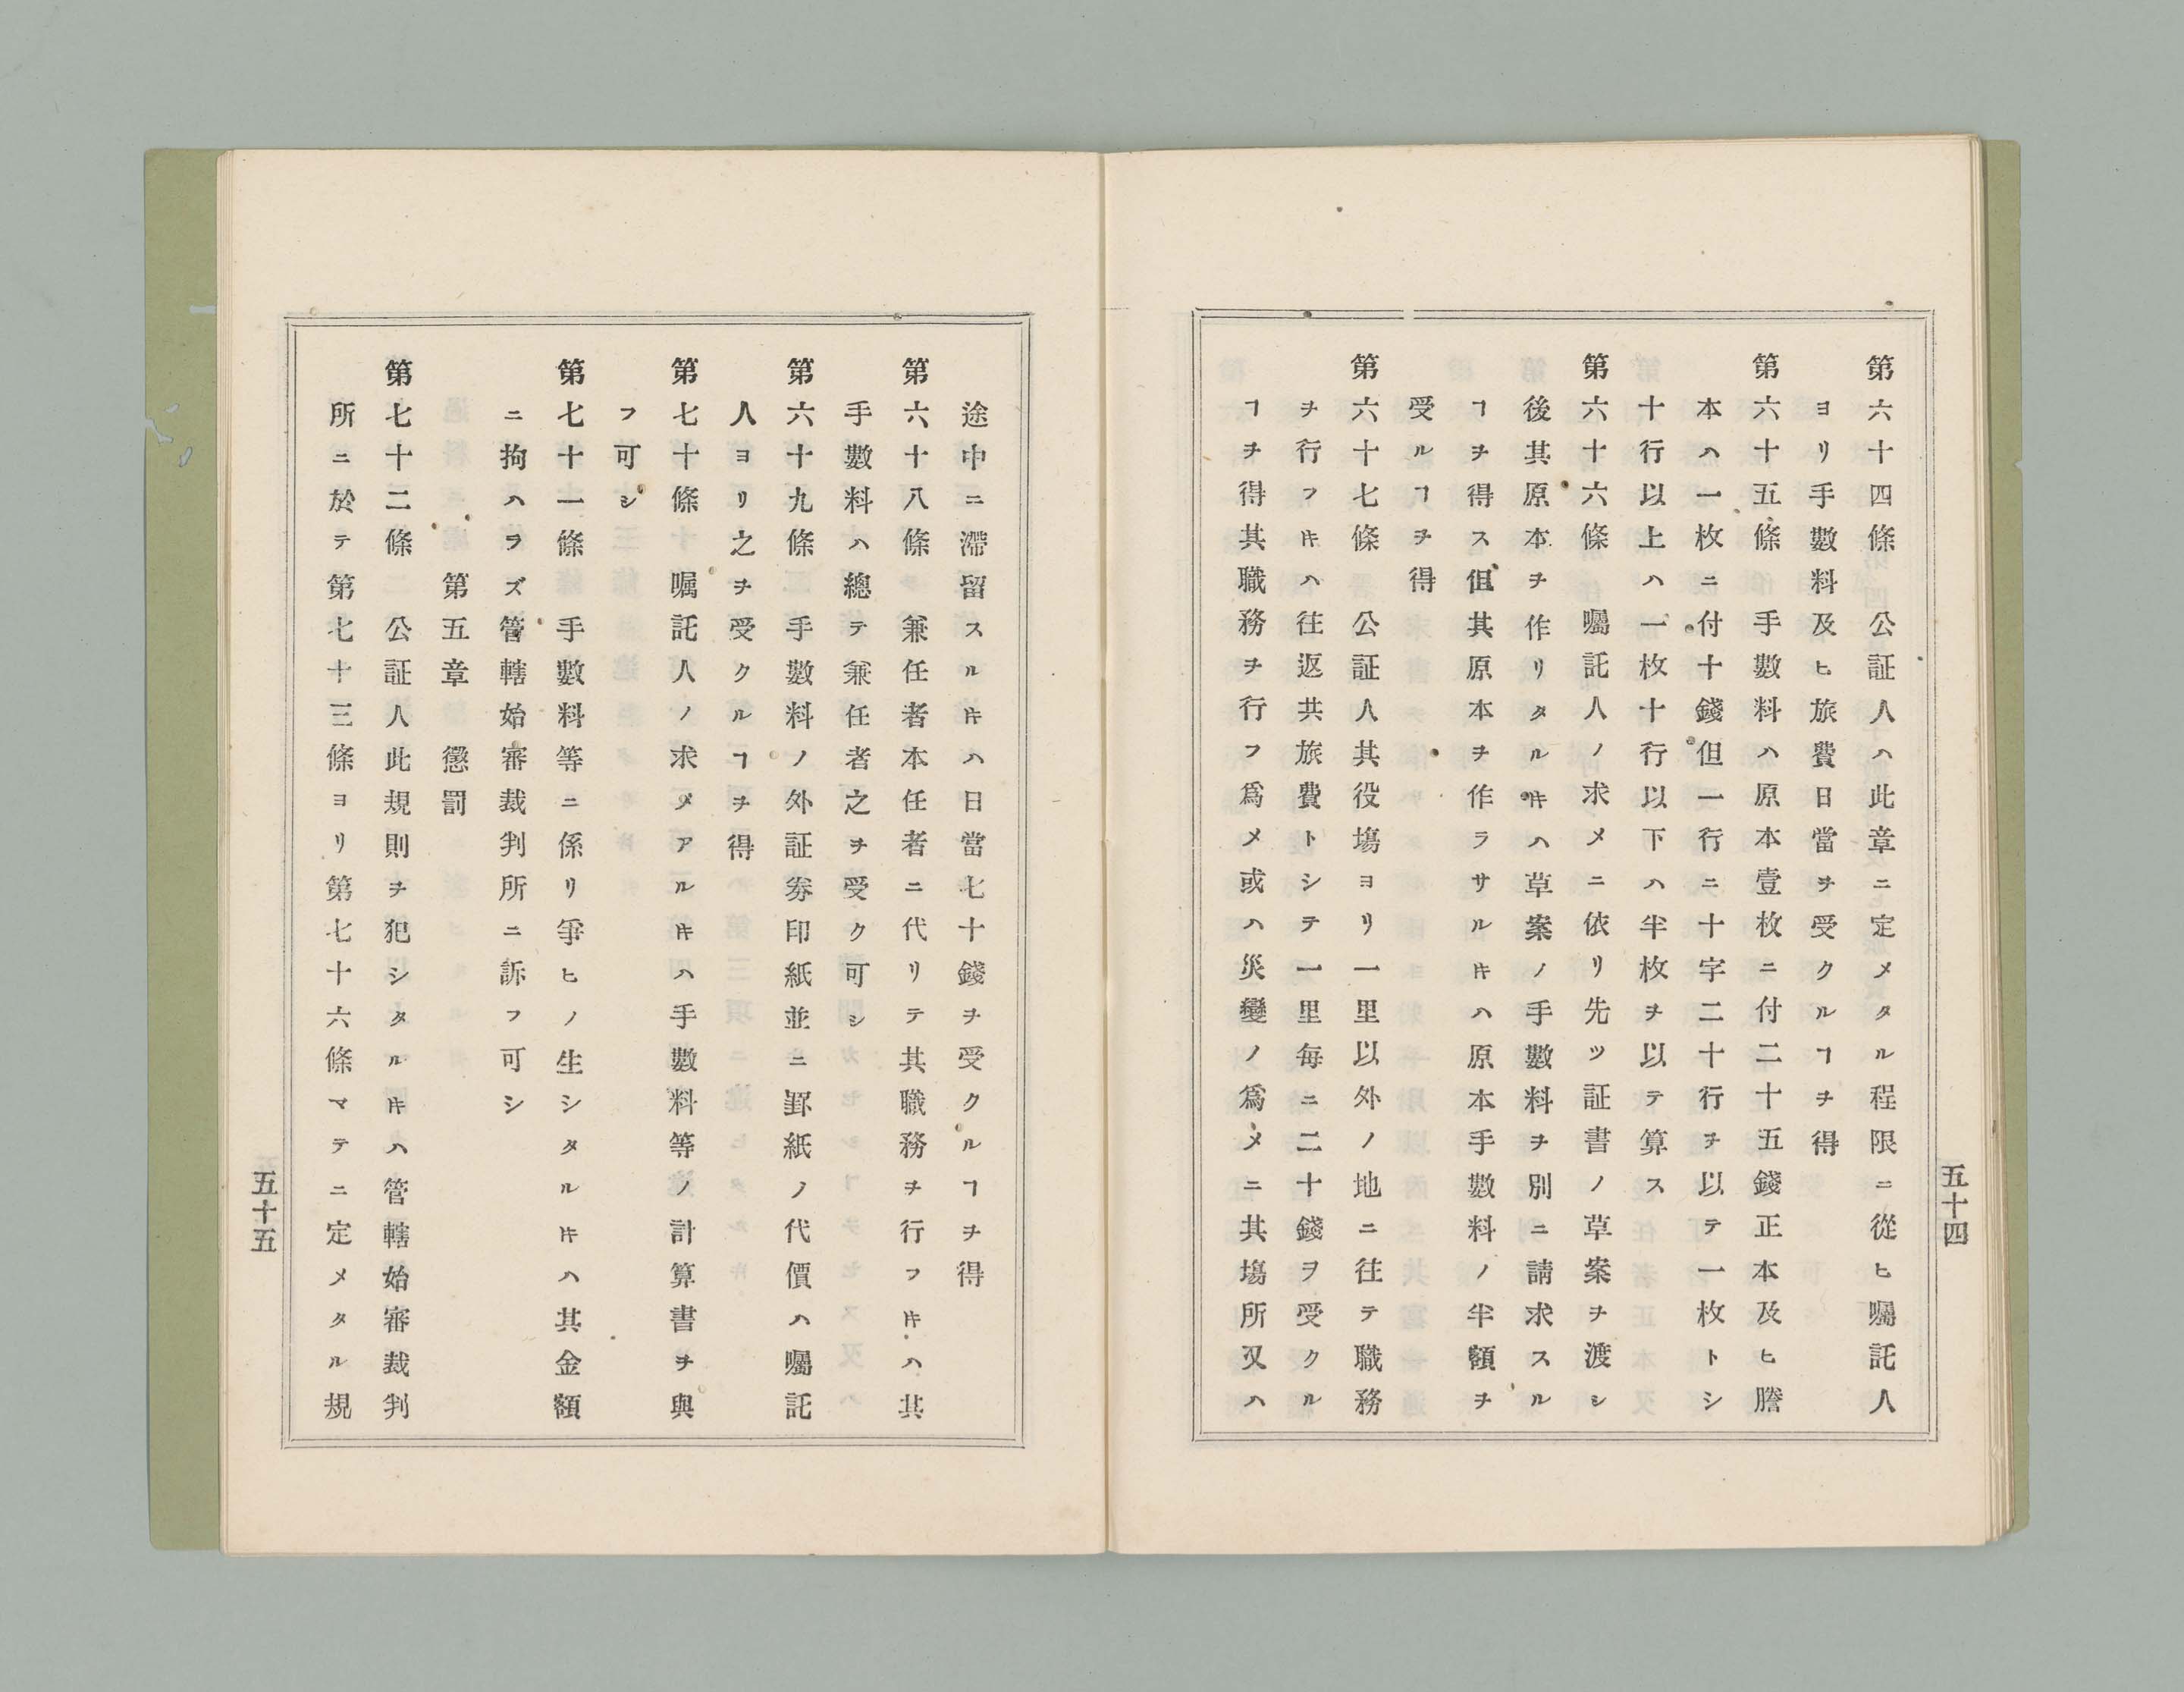 第六十四條　公証人ハ此章ニ定メタル程限ニ從ヒ囑託人
ヨリ手數料及ヒ旅費日當ヲ受クルヿヲ得
第六十五條　手數料ハ原本壹枚ニ付二十五錢正本及ヒ謄
本ハ一枚ニ付十錢但一行ニ十字二十行ヲ以テ一枚トシ
十行以上ハ一枚十行以下ハ半枚ヲ以テ算ス
第六十六條　囑託人ノ求メニ依リ先ツ証書ノ草案ヲ渡シ
後其原本ヲ作リタルキハ草案ノ手數料ヲ別ニ請求スル
ヿヲ得ス但其原本ヲ作ラサルキハ原本手數料ノ半額ヲ
受ルヿヲ得
第六十七條　公証人其役塲ヨリ一里以外ノ地ニ往テ職務
ヲ行フキハ往返共旅費トシテ一里每ニ二十錢ヲ受クル
ヿヲ得其職務ヲ行フ爲メ或ハ災變ノ爲メニ其塲所又ハ
五十四
途中ニ滯留スルキハ日當七十錢ヲ受クルヿヲ得
第六十八條　兼任者本任者ニ代リテ其職務ヲ行フキハ其
手數料ハ總テ兼任者之ヲ受ク可シ
第六十九條　手數料ノ外証券印紙並ニ罫紙ノ代價ハ囑託
人ヨリ之ヲ受クルヿヲ得
第七十條　囑託人ノ求メアルキハ手數料等ノ計算書ヲ與
フ可シ
第七十一條　手數料等ニ係リ爭ヒノ生シタルキハ其金額
ニ拘ハラズ管轄始審裁判所ニ訴フ可シ
第五章　懲罰
第七十二條　公証人此規則ヲ犯シタルキハ管轄始審裁判
所ニ於テ第七十三條ヨリ第七十六條マテニ定メタル規
五十五